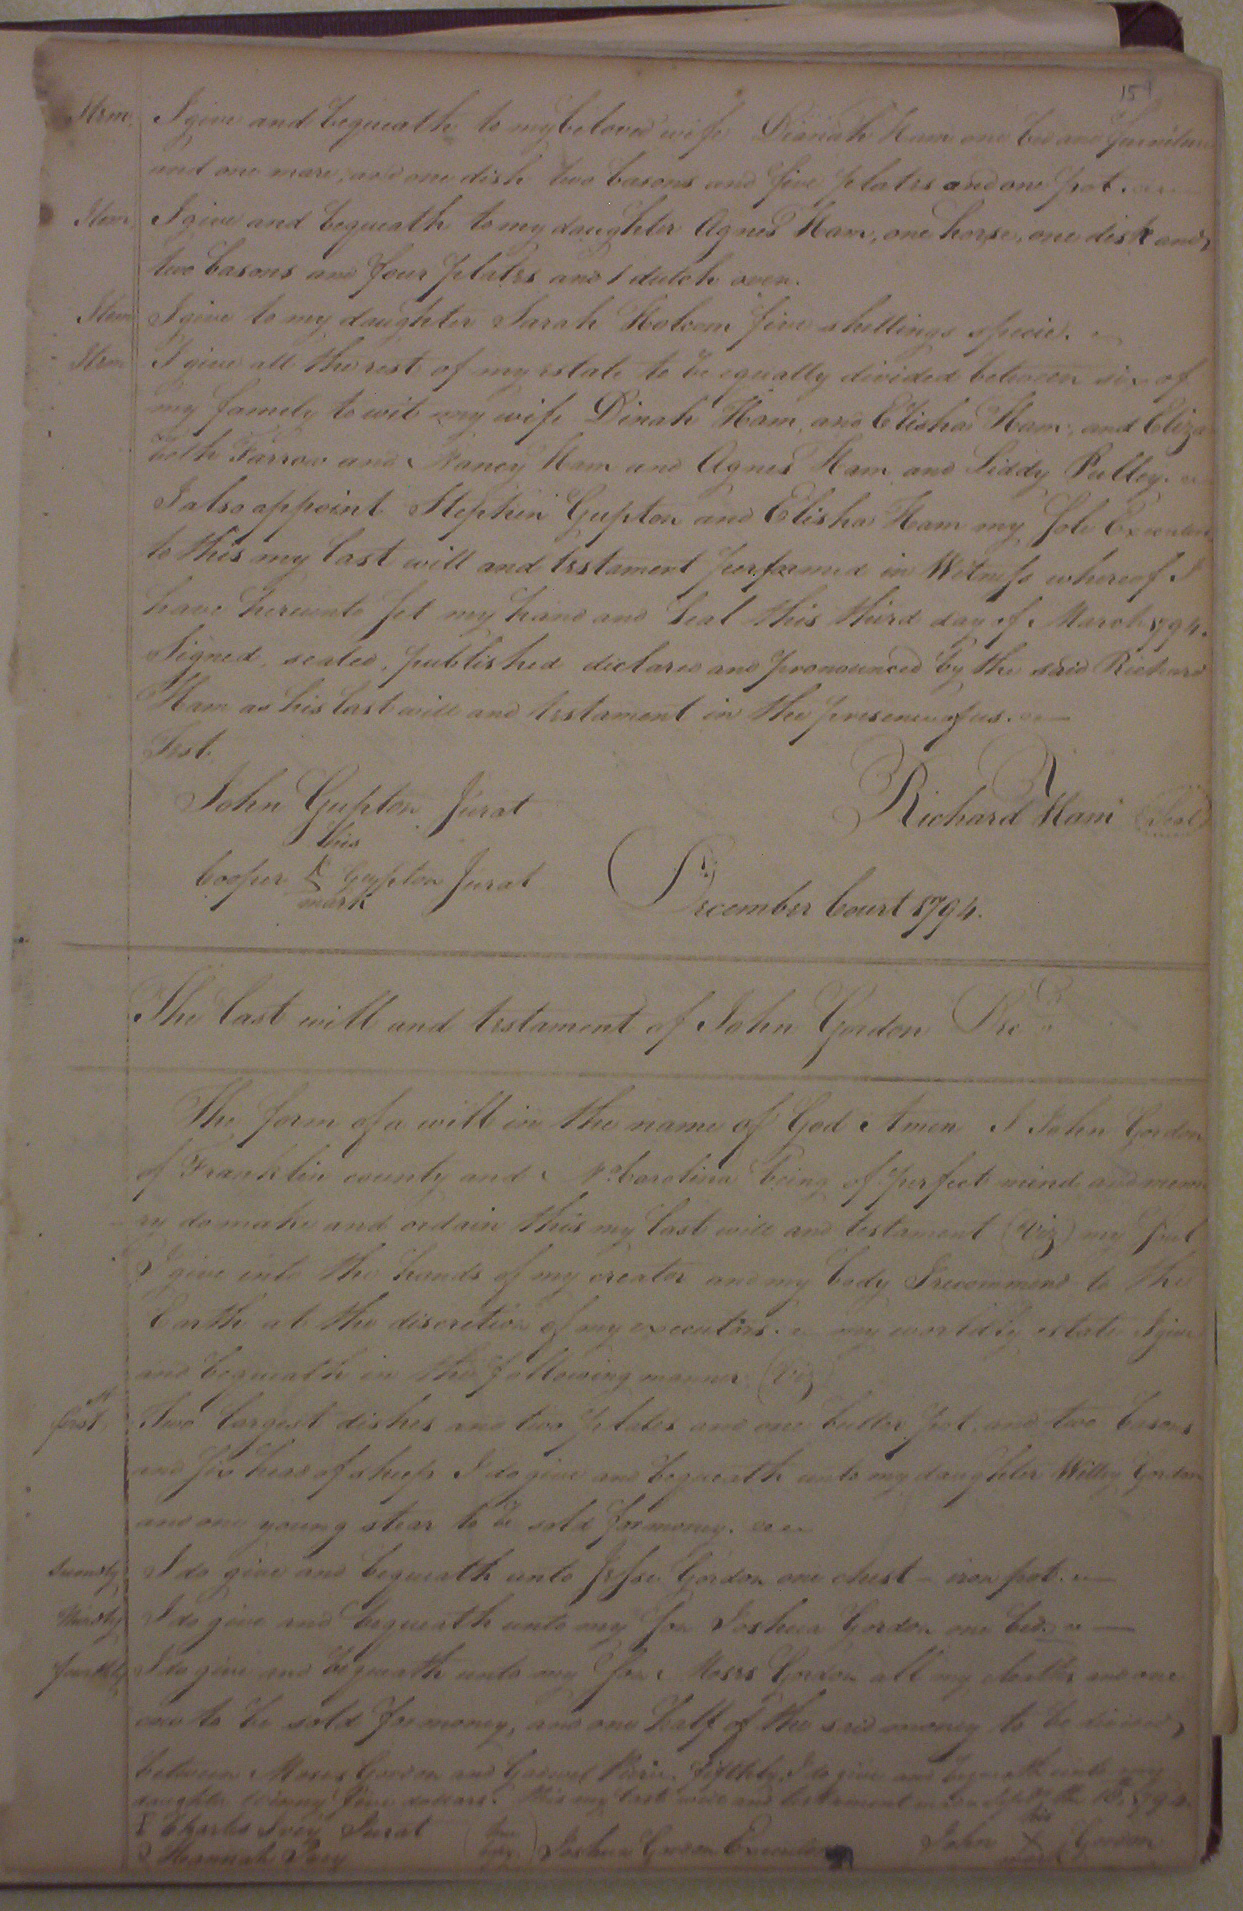 154
Item, I give and bequeath to my beloved wife Dianah Ham one bed and furniture
and one mare, and one dish two basons and five plates and one pot.
Item, I give and bequeath to my daughter Agnes Ham, one horse, one dish and
two basons and four plates and 1 dutch oven.
Item I give to my daughter Sarah Holcom five shillings specie.
Item I give all the rest of my estate to be equally divided between six of
my family to wit my wife Dinah Ham, and Elisha Ham, and Eliza
beth Farrow and Nancy Ham and Agnes Ham and Liddy Pulley.
I also appoint Stephen Gupton and Elisha Ham my sole Executors
to this my last will and testament performed in Witness whereof I
have hereunto set my hand and seal this third day of March 1794.
Signed, sealed, published declared and pronounced by the said Richard
Ham as his last will and testament in the presence of us.
Test
John Gupton Jurat
Richard Ham (Seal)
his
Cooper Gupton Jurat
mark
December Court 1794.
The last will and testament of John Gordon Decd
The form of a will in the name of God Amen I John Gordon
of Franklin county and No. Carolina being of perfect mind and memo
ry do make and ordain this my last will and testament (Viz) my soul
I give into the hands of my creator and my body I recommend to the
Earth at the discretion of my executors. my worldly estate I give
and bequeath in the following manner (Viz)
first, Two largest dishes and two plates and one butter pot, and two basons
and six head of sheep I do give and bequeath unto my daughter Willey Gordon
and one young stear to be sold for money.
I do give and bequeath unto Jesse Gordon one chest - iron pot.
Thirdly I do give and bequeath unto my son Joshua Gordon one bed.
fourthly I do give and bequeath unto my son Moses Gordon all my cloaths and one
cow to be sold for money, and one half of the said money to be divided
between Moses Gordon and Fifthly, I do give and bequeath unto my
daughter Winney five dollars. This my last will and testament 1794.
Charles Ivey Jurat
Joshua Gordon Executor
his
John X Gordon
mark
Hannah Ivey